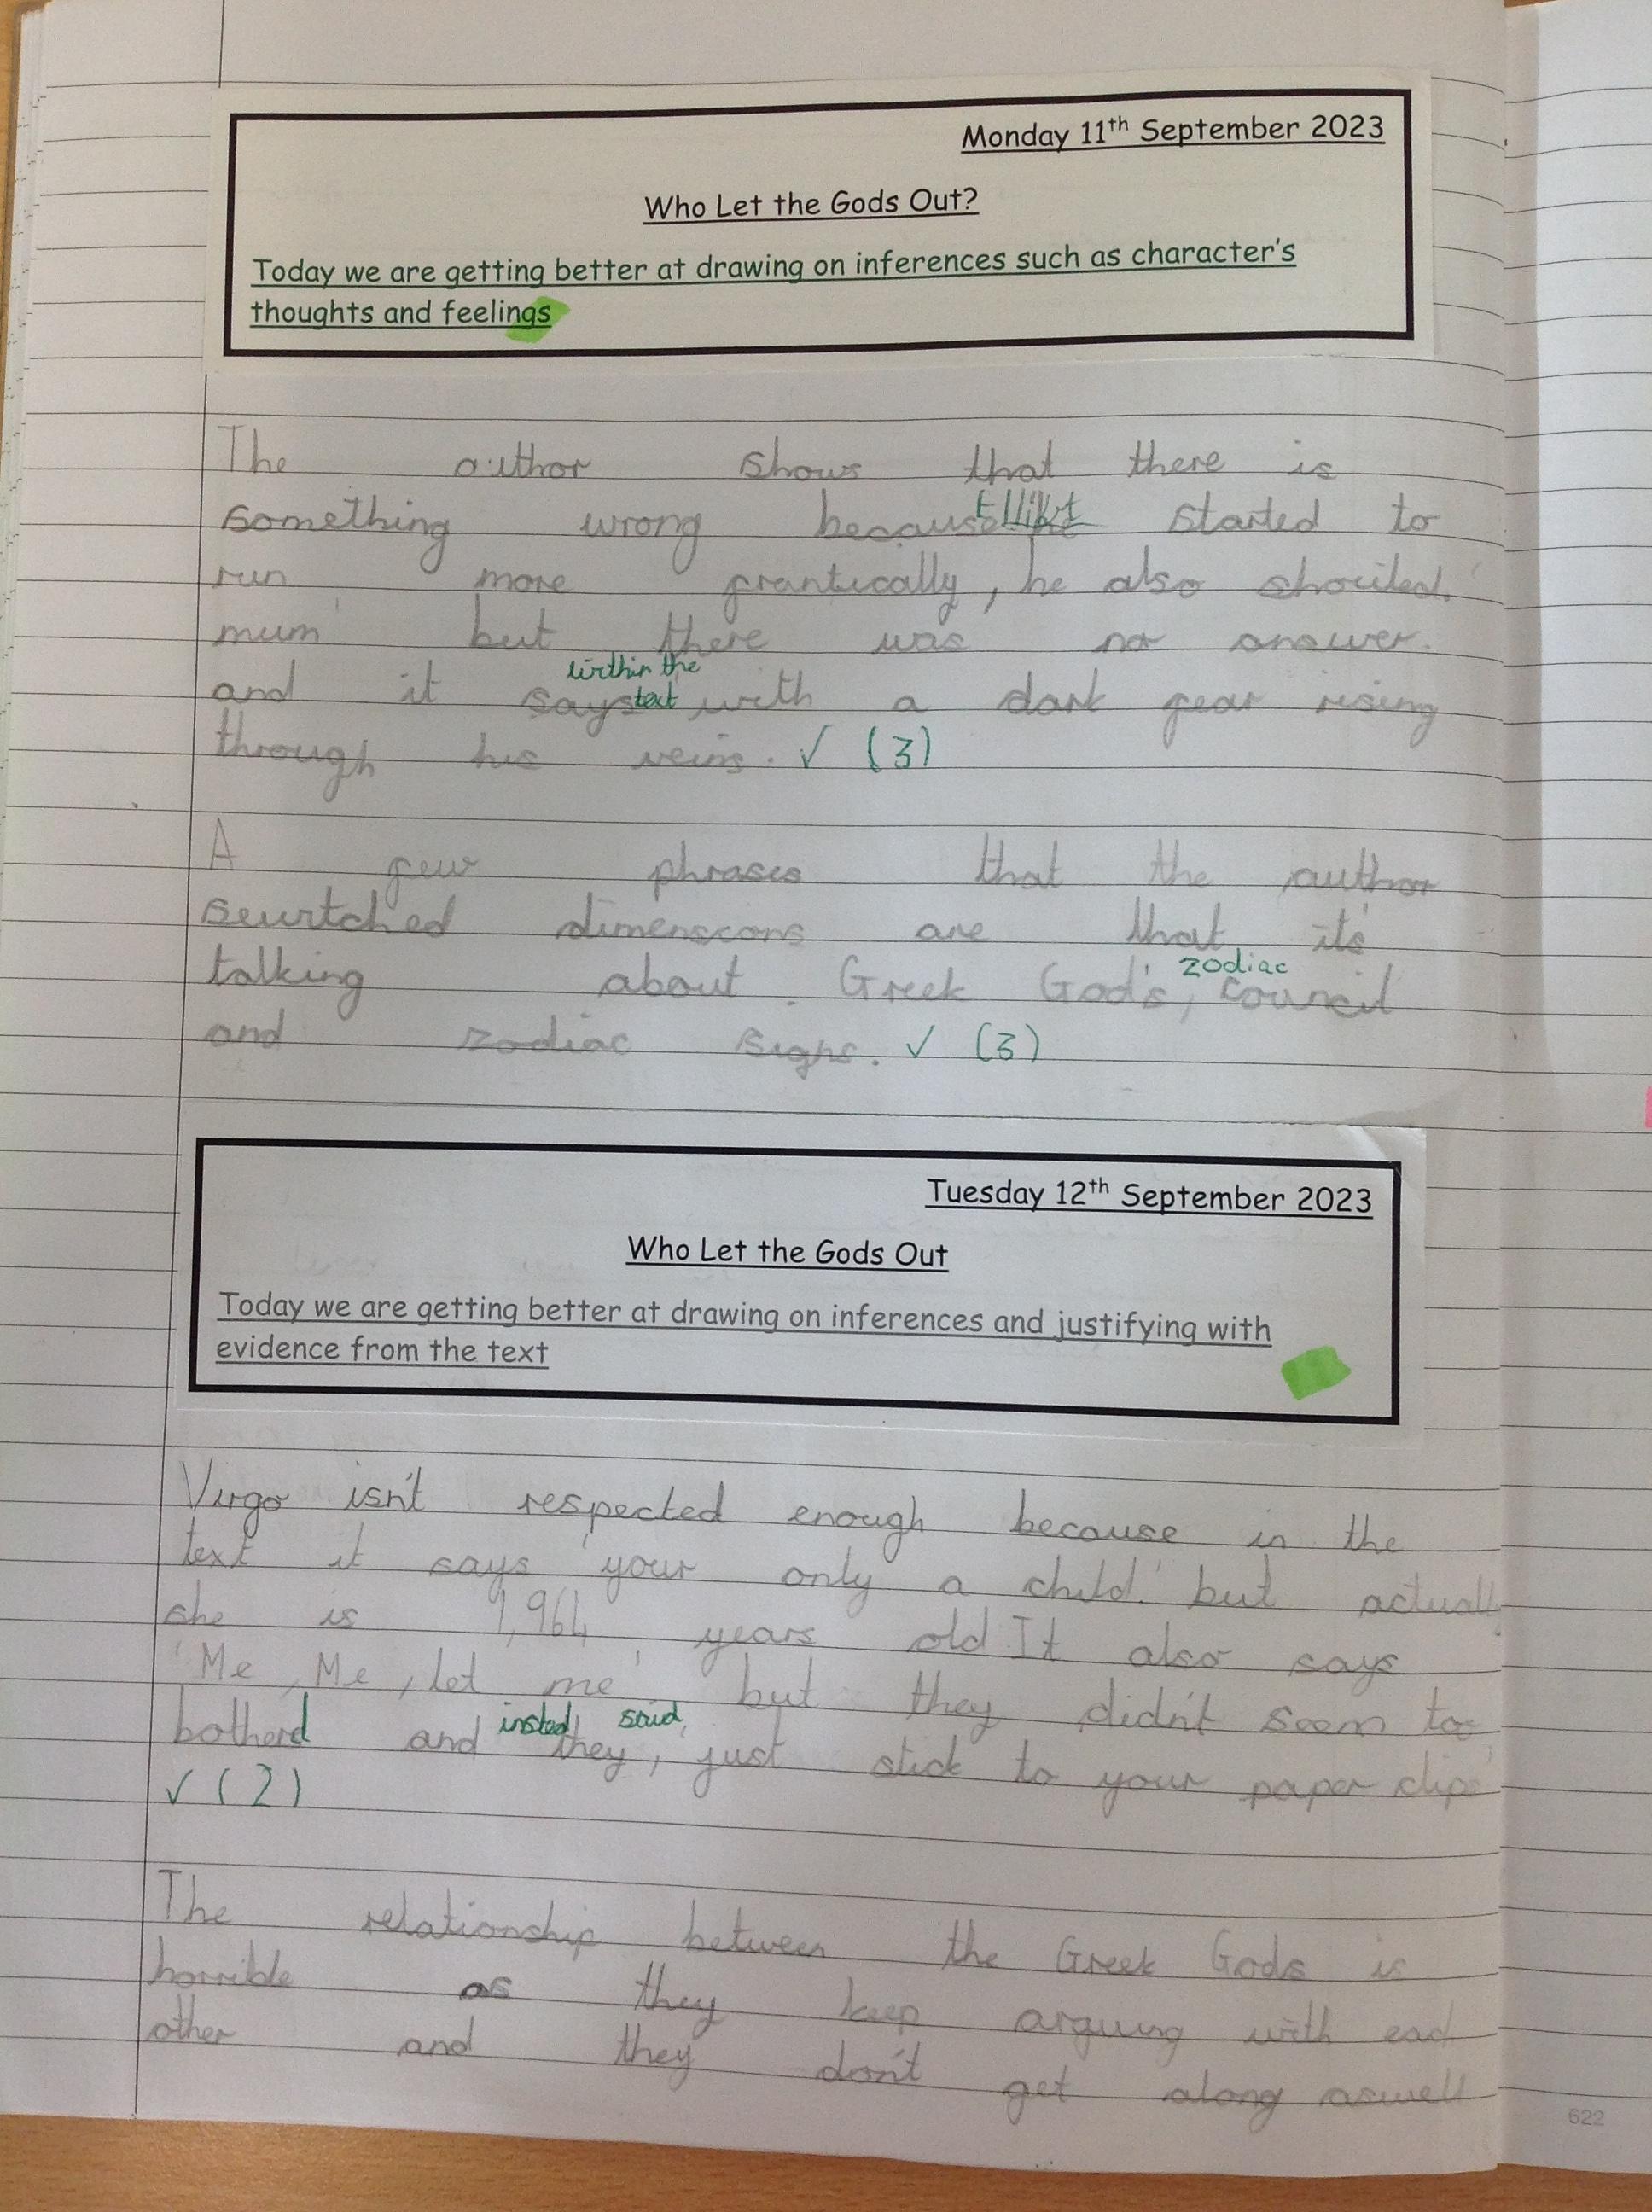 Monday 11th September 2023
Who Let the Gods Out?
Today we are getting better at drawing on inferences such as character's
thoughts and feelings
The author shows that there is
something wrong because Elliot started to
run more frantically, he also shouted.'
mum' but there was no answer.
within the
and it says text with a dark fear rising
through his veins. ✓ (3)
A few phrases that the author
sewitched dimenscons are that it's
zodiac
talking about. Greek God's, council
and zodiac signs. ✓ (3)
Tuesday 12th September 2023
Who Let the Gods Out
Today we are getting better at drawing on inferences and justifying with
evidence from the text
Virgo isn't respected enough because in the
text it says 'your only a child.' but actually
she is 1,964 years old It also says
'Me, Me, let me' but they didn't seem to
insted said,
botherd and they, 'just stick to your paper clips'
✓ (2)
The relationship between the Greek Gods is
horrible as they keep arguing with each
other and they don't get along aswell
622